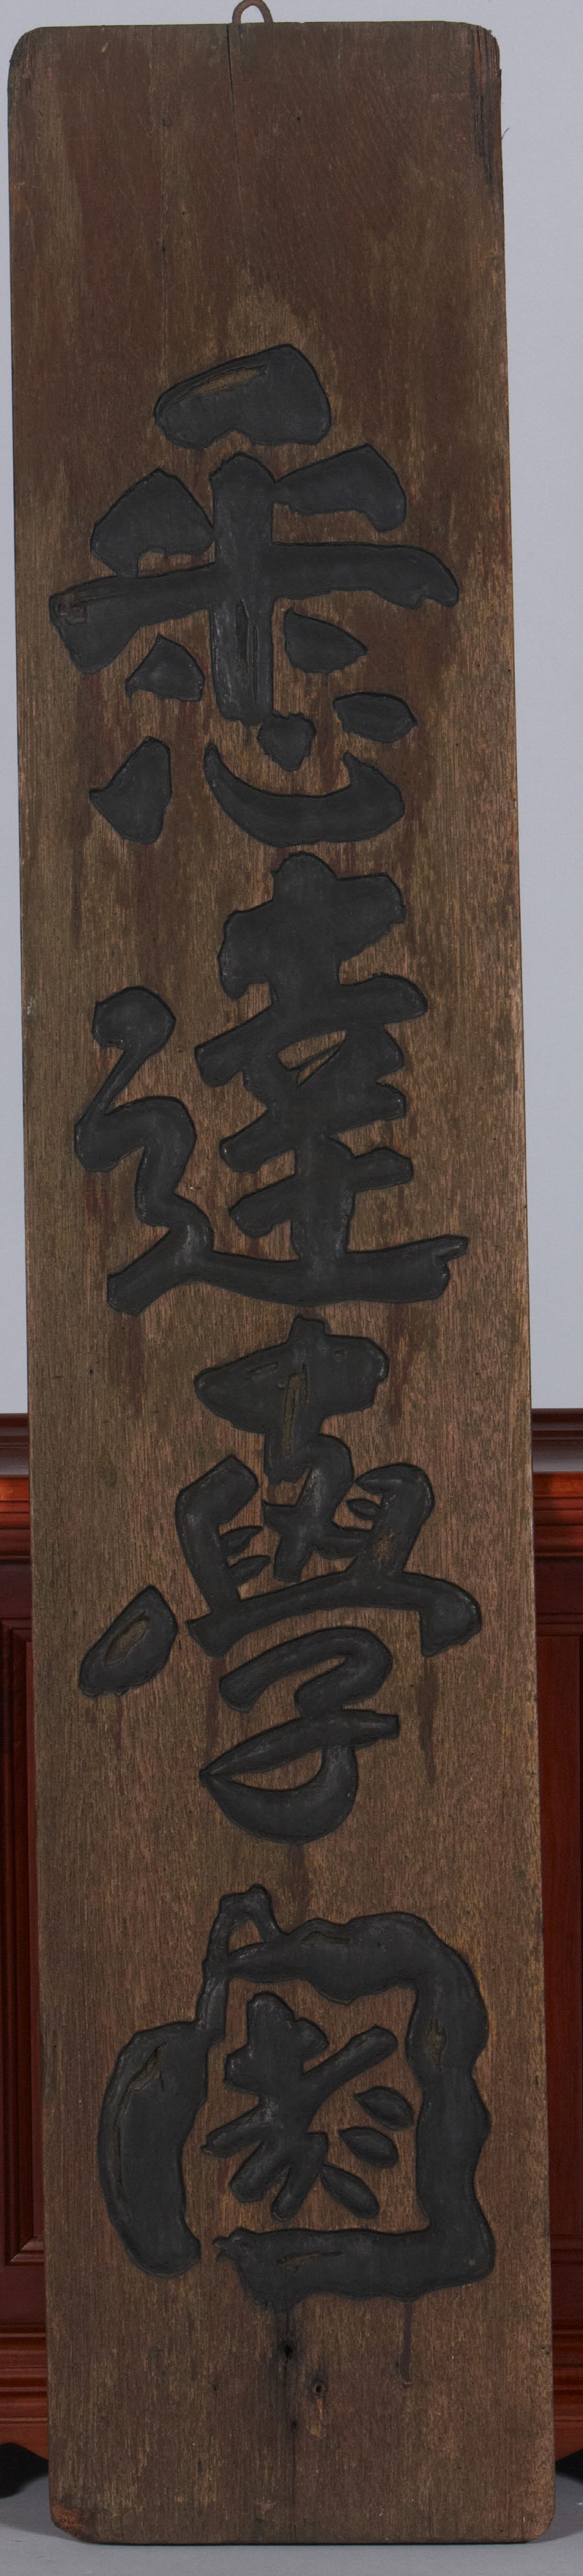 悉達學園